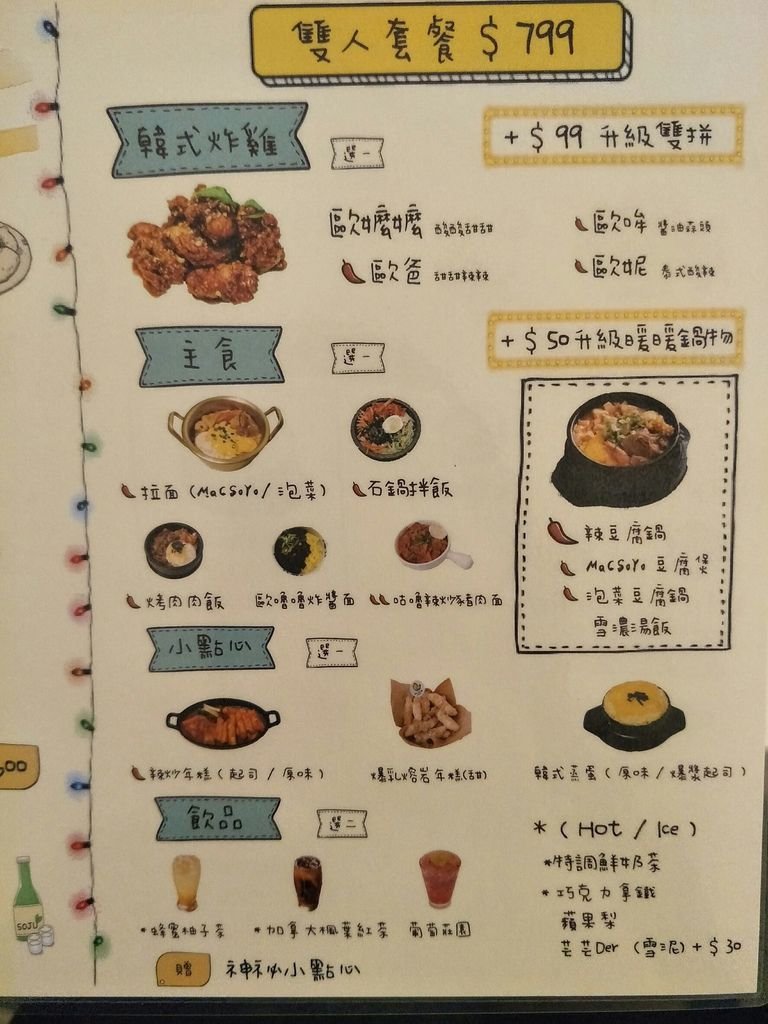 雙人套餐 $799
韓式炸雞 選一
+$99 升級雙拼
歐嬤嬤 酸酸甜甜
歐哞 醬油蒜頭
歐爸 甜甜辣辣
歐妮 泰式酸辣
主食 選一
+$50升級暖暖鍋物
拉面 (MaCSoYo/泡菜)
石鍋拌飯
烤肉肉飯
歐嚕嚕炸醬面
咕嚕辣炒豬肉面
辣豆腐鍋
MaCSoYo 豆腐煲
泡菜豆腐鍋
雪濃湯飯
小點心 選一
辣炒年糕 (起司/原味)
爆乳熔岩年糕(甜)
韓式蒸蛋 (原味/爆漿起司)
飲品 選二
* (Hot / Ice)
*蜂蜜柚子茶
*加拿大楓葉紅茶
葡萄莊園
*特調鮮奶茶
*巧克力拿鐵
蘋果梨
芸芸Der (雪泥)+$30
贈 神祕小點心
00
SOJU